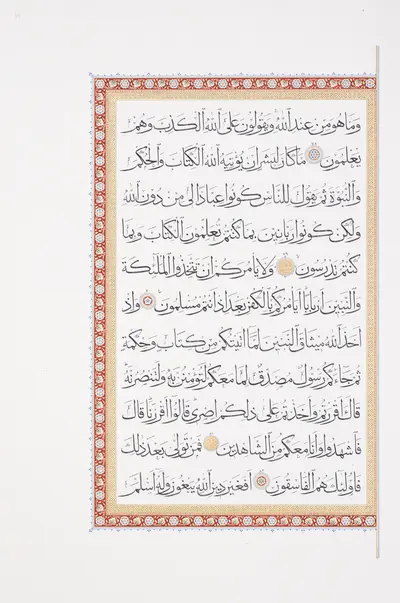 وما هو من عند الله ويقولون على الله الكذب وهم
يعلمون ما كان لبشر ان يؤتيه الله الكتاب والحكم
والنبوة ثم يقول للناس كونوا عبادا لى من دون الله
ولكن كونوا ربانيين بما كنتم تعلمون الكتاب وبما
كنتم تدرسون ولا يامركم ان تتخذوا الملئكة
والنبيين اربابا ايامركم بالكفر بعد اذ انتم مسلمون واذ
اخذ الله ميثاق النبيين لما اتيتكم من كتاب وحكمة
ثم جاءكم رسول مصدق لما معكم لتؤمنن به ولتنصرنه
قال اقررتم واخذتم على ذلكم اصرى قالوا اقررنا قال
فاشهدوا وانا معكم من الشاهدين فمن تولى بعد ذلك
فاولئك هم الفاسقون افغير دين الله يبغون وله اسلم